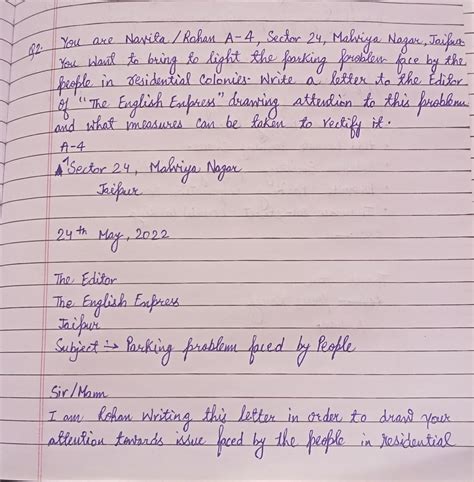 Q2. You are Navita/Rohan A-4, Sector 24, Malviya Nagar, Jaipur
You want to bring to light the parking problem face by the
people in residential colonies. Write a letter to the Editor
of "The English Express" drawing attention to this problem
and what measures can be taken to rectify it.
A-4
Sector 24, Malviya Nagar
Jaipur
24th May, 2022
The Editor
The English Express
Jaipur
Subject :→ Parking problem faced by People
Sir/Mam
I am Rohan writing this letter in order to draw your
attention towards issue faced by the people in residential